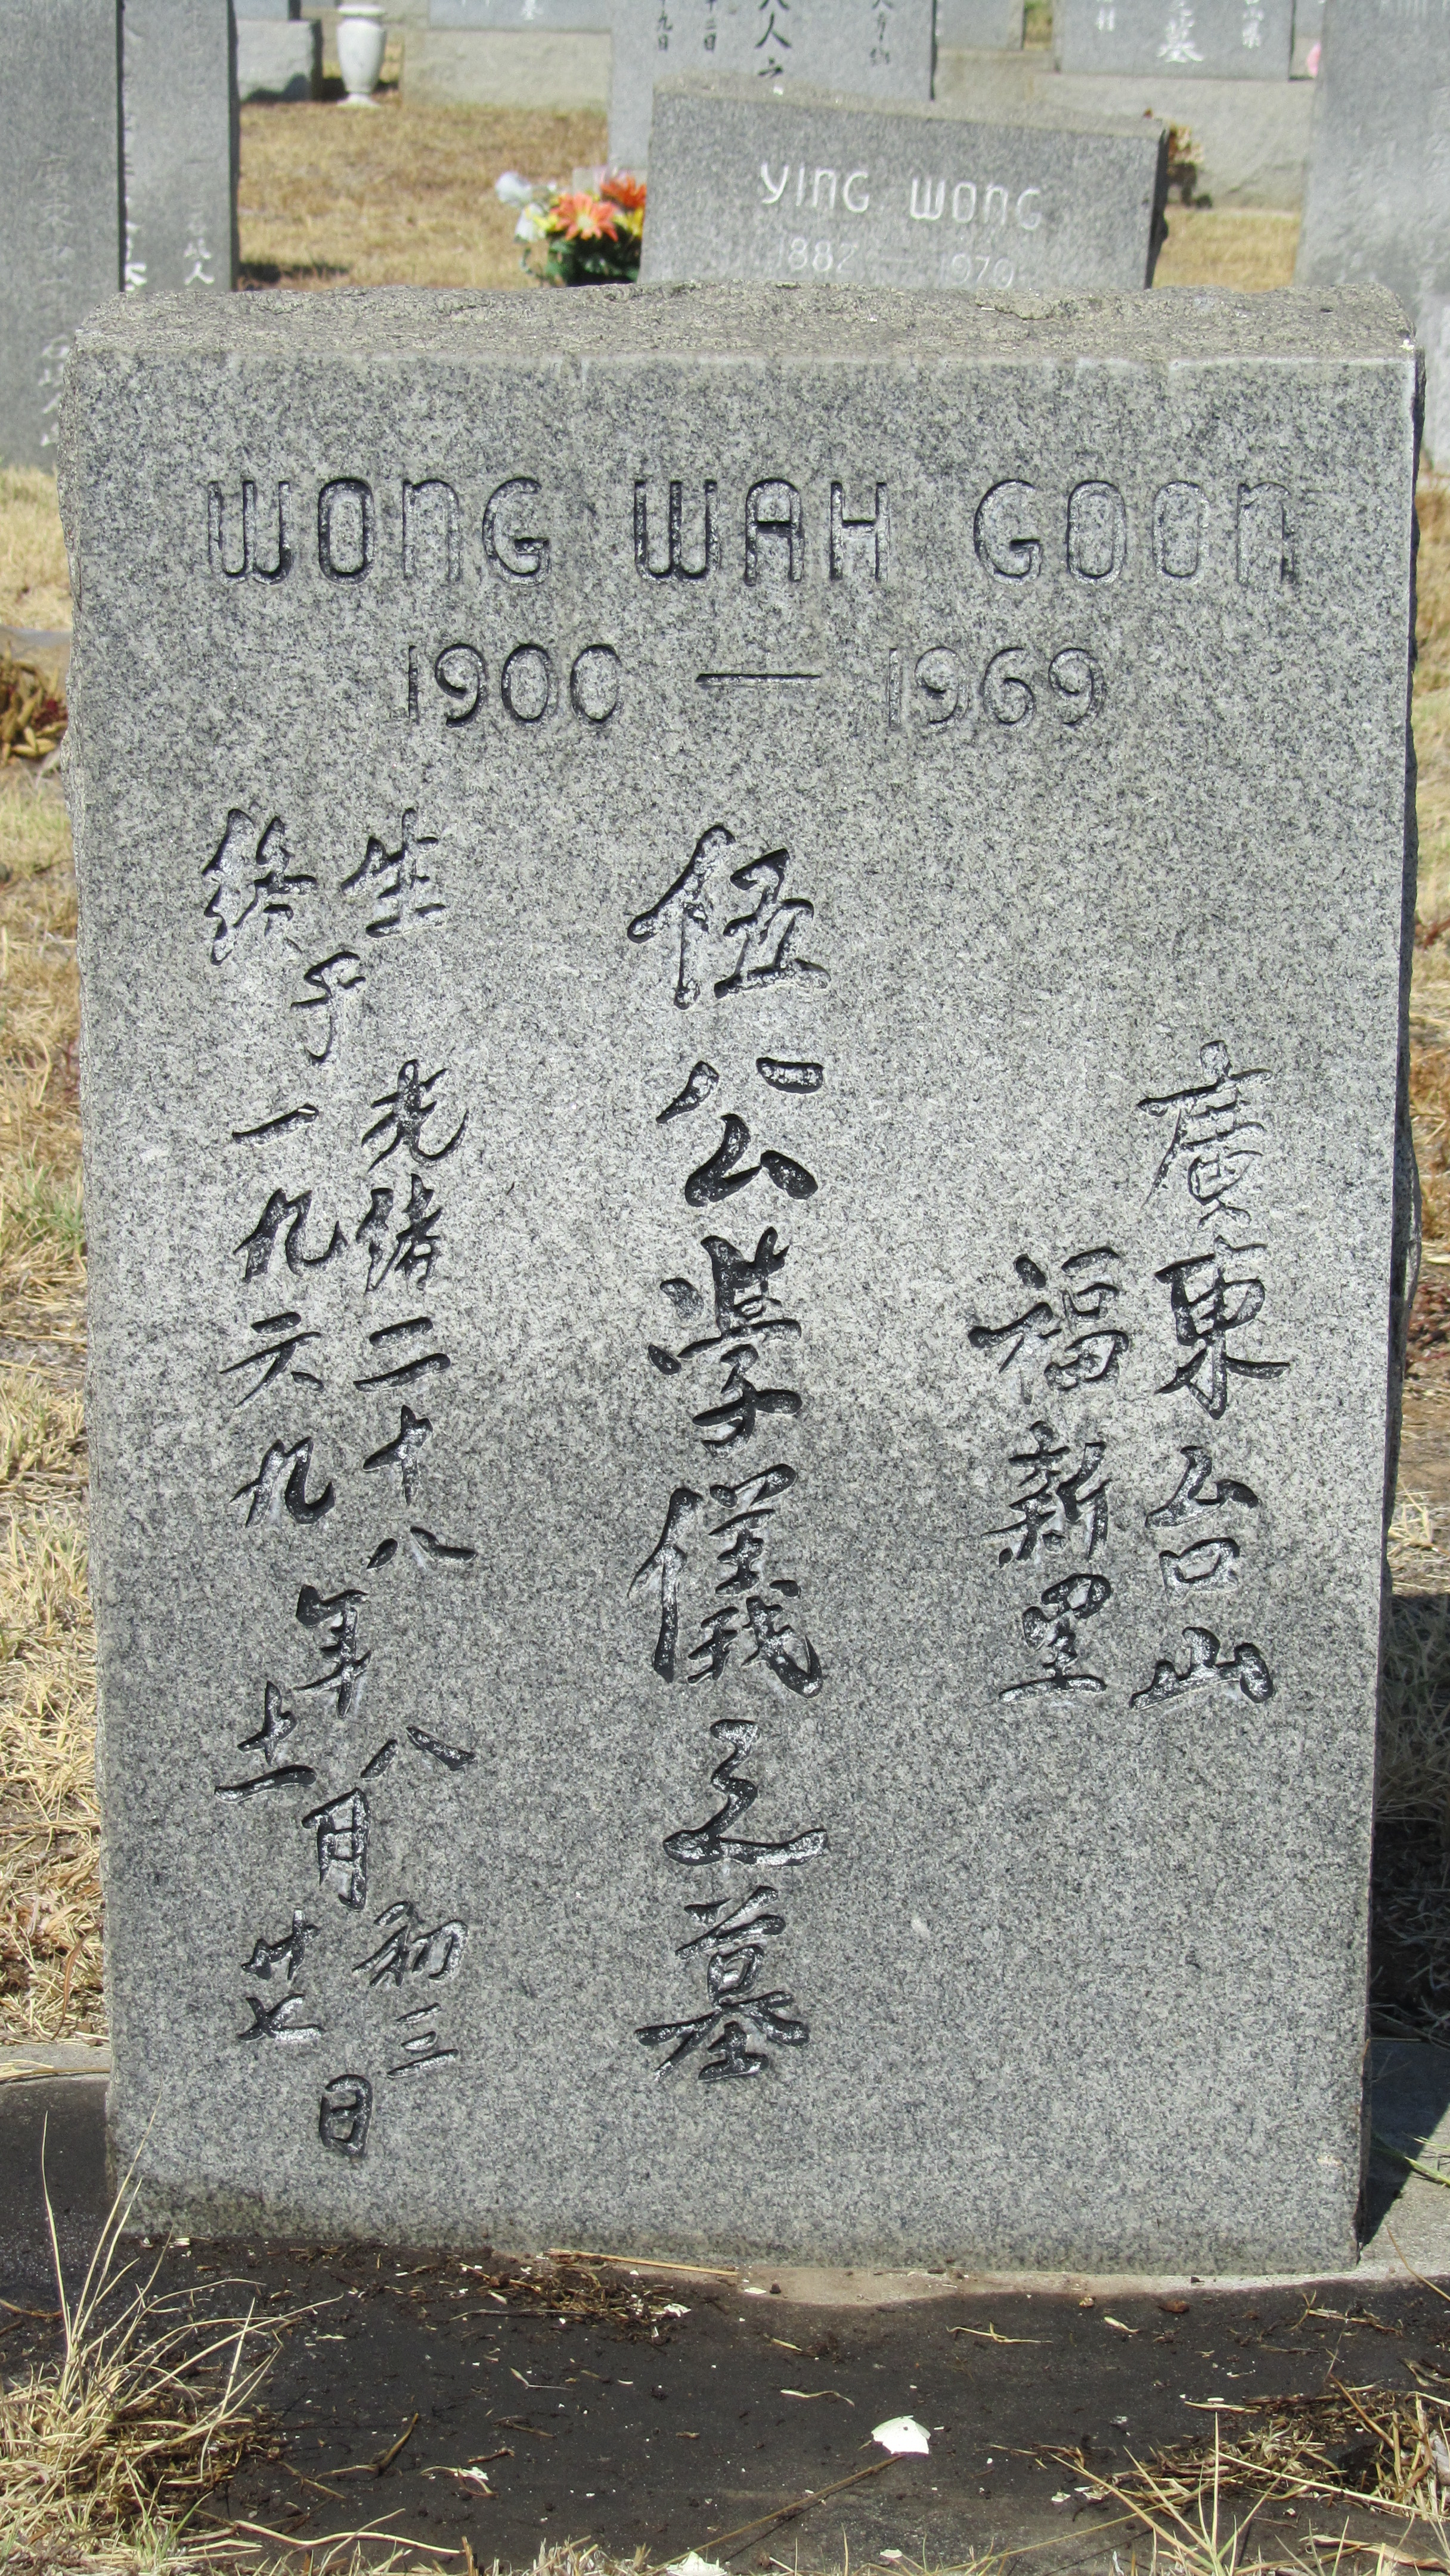 YING WONG
1882 — 1979
WONG WAH GOON
1900 — 1969
廣東台山
福新里
伍公學儀之墓
生于光緒二十八年八月初三日
終于一九六九年十一月廿七日